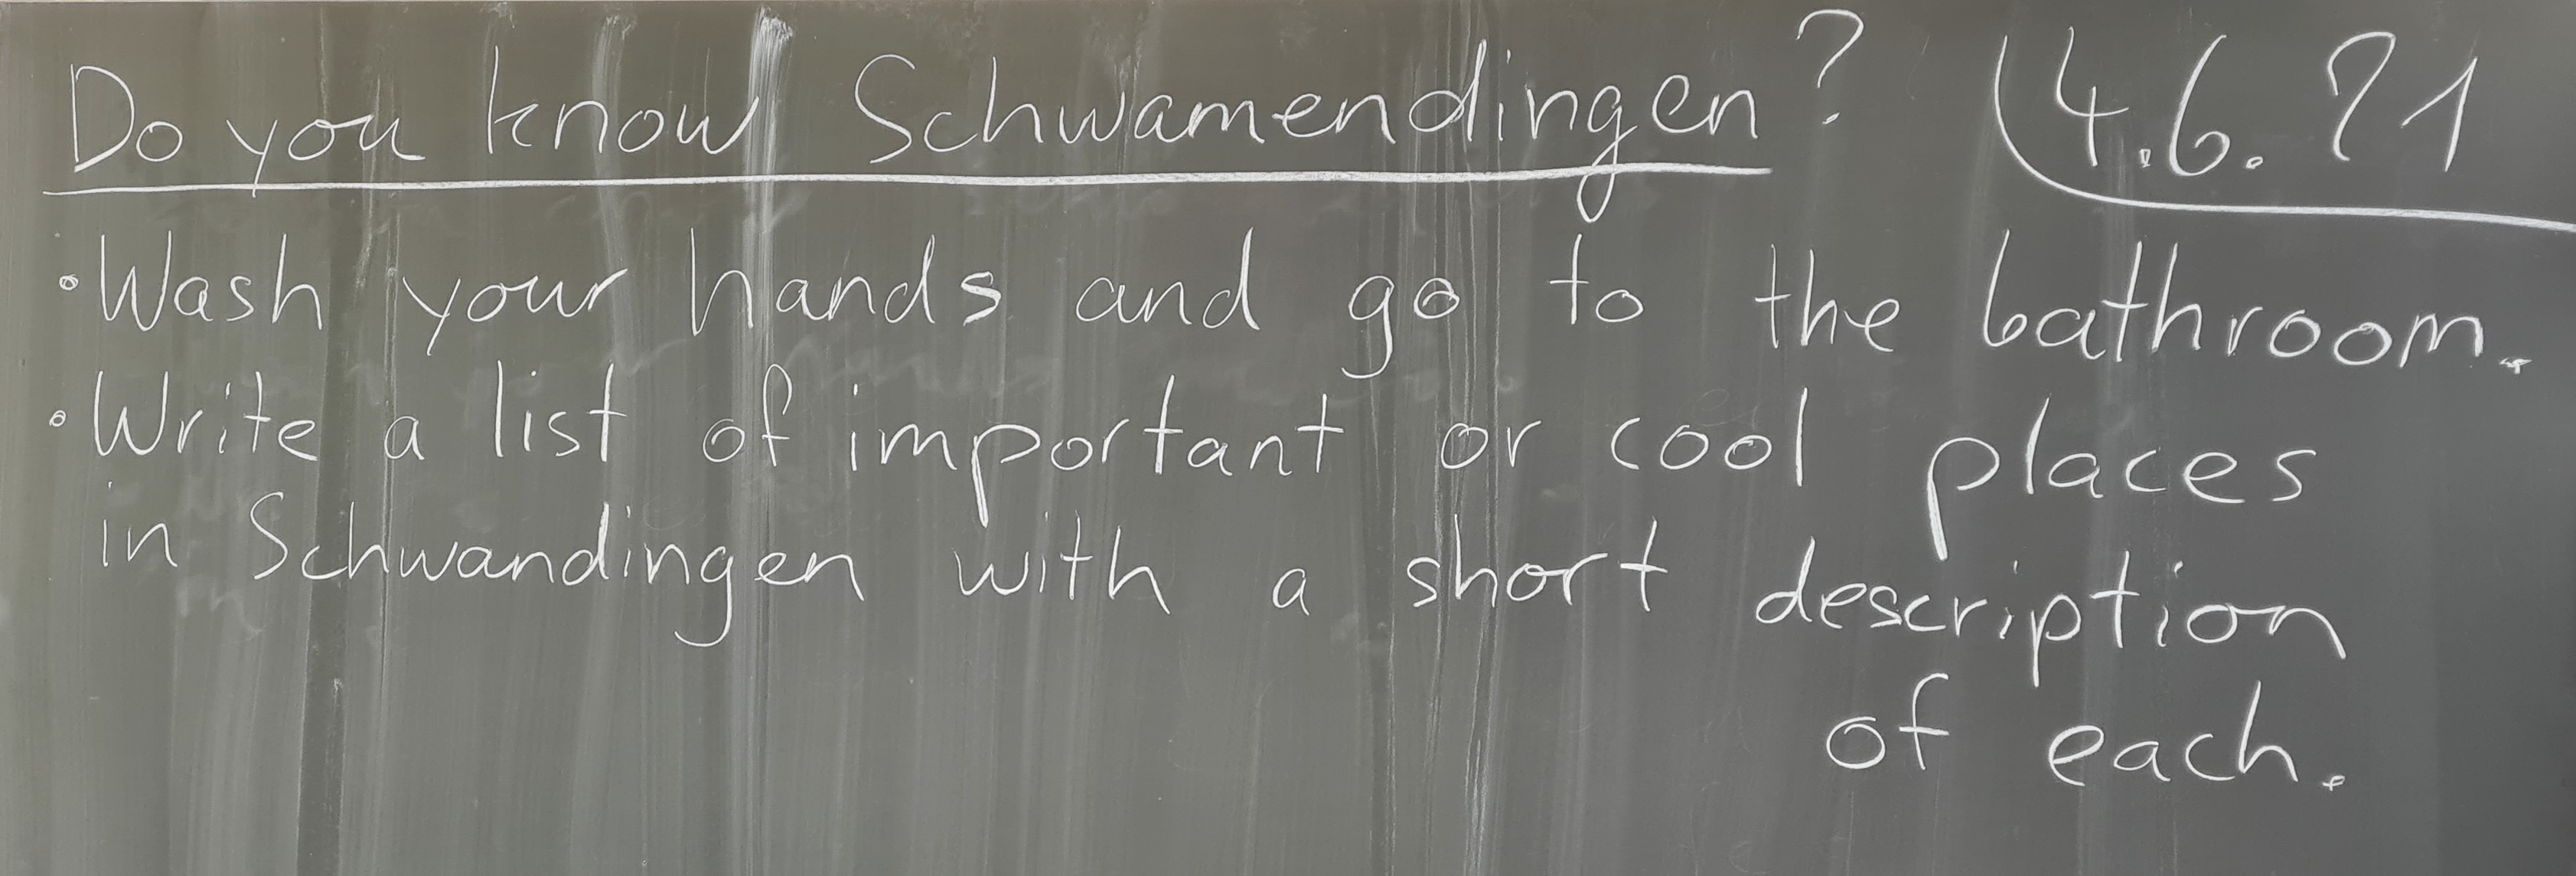 Do you know Schwamendingen? 4.6.21
• Wash your hands and go to the bathroom.
• Write a list of important or cool places
in Schwandingen with a short description
of each.